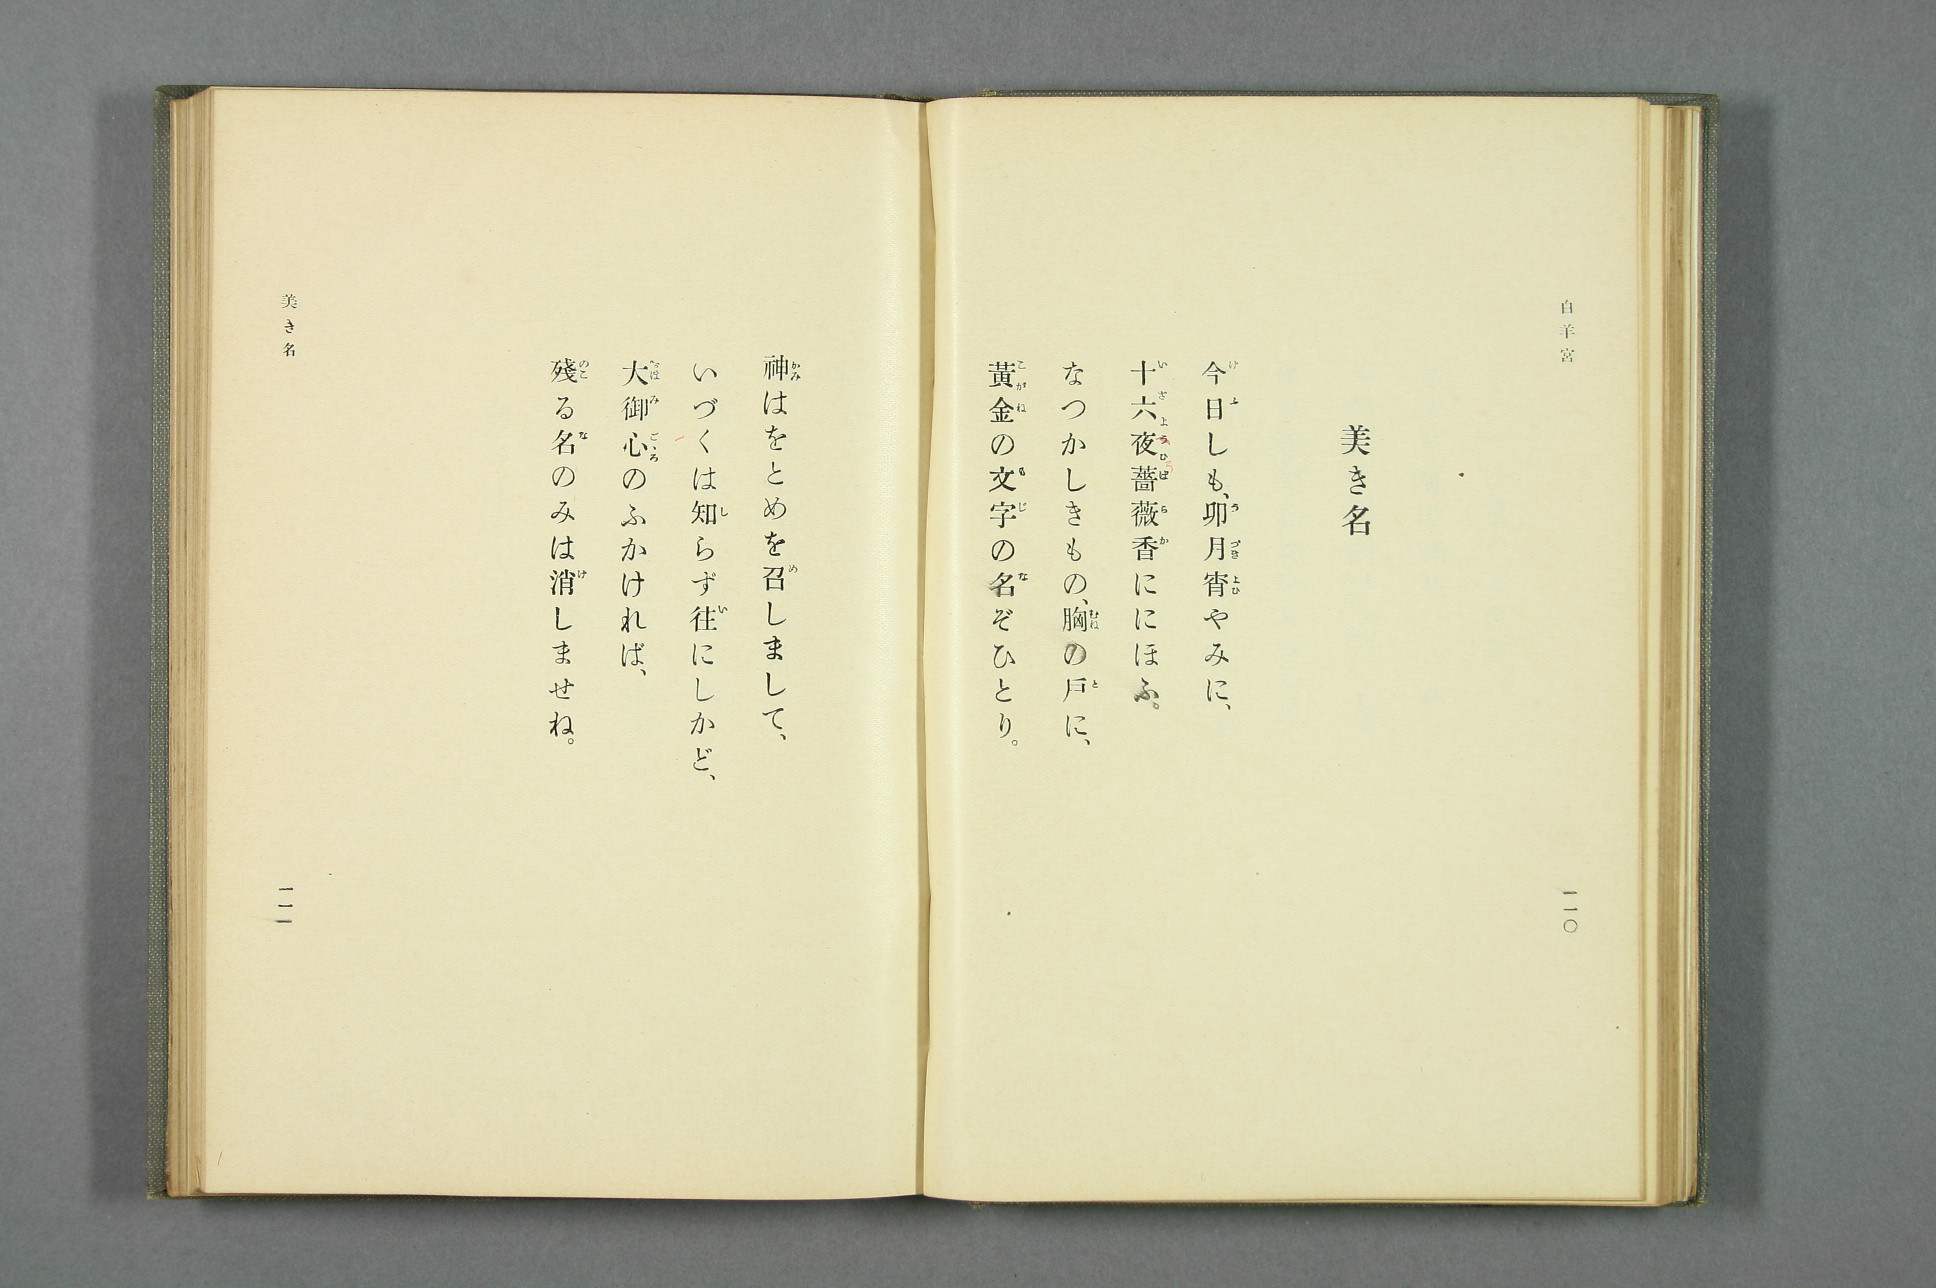 白羊宮
美き名
今日しも、卯月宵やみに、
十六夜薔薇香ににほふ。
なつかしきもの、胸の戸に、
黃金の文字の名ぞひとり。
一一〇
神はをとめを召しまして、
いづくは知らず往にしかど、
大御心のふかければ、
殘る名のみは消しませね。
美き名
一一一